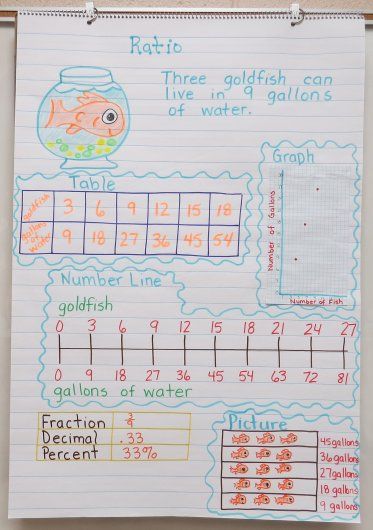 Ratio
Three goldfish can
live in 9 gallons
of water.
Graph
Number of Gallons
Number of Fish
Table
goldfish 3 6 9 12 15 18
gallons of water 9 18 27 36 45 54
Number Line
goldfish
0 3 6 9 12 15 18 21 24 27
0 9 18 27 36 45 54 63 72 81
gallons of water
Fraction 3/9
Decimal .33
Percent 33%
Picture
45 gallons
36 gallons
27 gallons
18 gallons
9 gallons